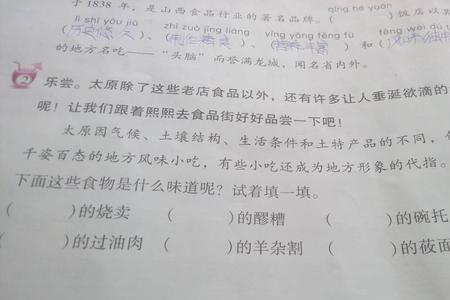 于 1838 年，是山西食品行业的著名品牌。(qìng hé yuán)饭店以
lì shǐ yōu jiǔ zhì zuò jīng liáng yíng yǎng fēng fù fēng wèi dú
(历史悠久)、(制作精良)、(营养丰富)和(风味独
的地方名吃——“头脑”而誉满龙城，闻名省内外。
2 乐尝。太原除了这些老店食品以外，还有许多让人垂涎欲滴的
呢！让我们跟着熙熙去食品街好好品尝一下吧！
太原因气候、土壤结构、生活条件和土特产品的不同，
千姿百态的地方风味小吃，有些小吃还成为地方形象的代指。
下面这些食物是什么味道呢？试着填一填。
( )的烧卖 ( )的醪糟 ( )的碗托
( )的过油肉 ( )的羊杂割 ( )的莜面